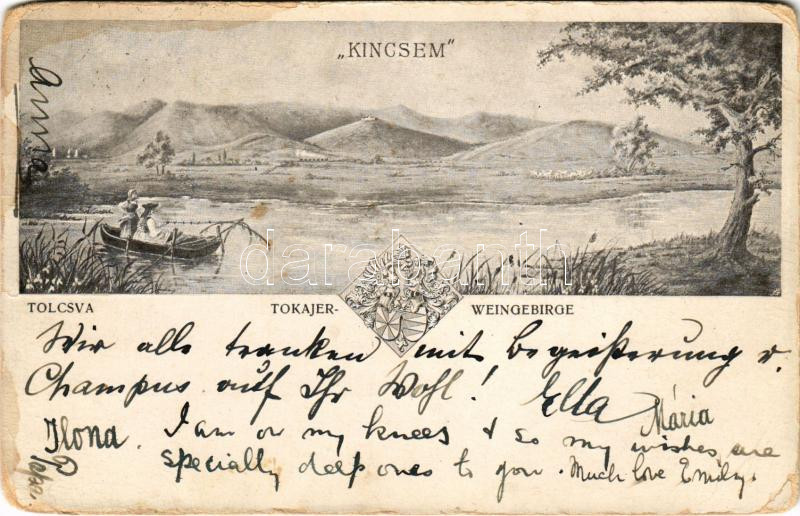 „KINCSEM“
Anna
TOLCSVA TOKAJER- WEINGEBIRGE
Wir alle tranken mit Begeisterung u.
Champus auf Ihr Wohl! Ella
Mária
Ilona. I am on my knees & so my wishes are
specially deep ones to you. Much love Emily.
darabanth